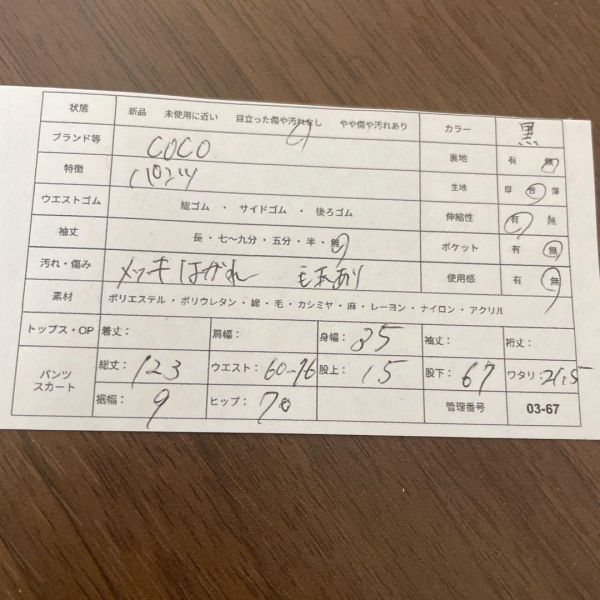 状態 新品 未使用に近い 目立った傷や汚れなし やや傷や汚れあり カラー 黒
ブランド等 COCO 裏地 有 無
特徴 パンツ 生地 厚 普 薄
ウエストゴム 総ゴム ・ サイドゴム ・ 後ろゴム 伸縮性 有 無
袖丈 長・七〜九分・五分・半・無 ポケット 有 無
汚れ・傷み メッキはがれ 毛玉あり 使用感 有 無
素材 ポリエステル・ポリウレタン・綿・毛・カシミヤ・麻・レーヨン・ナイロン・アクリル
トップス・OP 着丈: 肩幅: 身幅: 35 袖丈: 裄丈:
パンツ スカート 総丈: 123 ウエスト: 60-76 股上: 15 股下: 67 ワタリ: 21,5
裾幅: 9 ヒップ: 70 管理番号 03-67